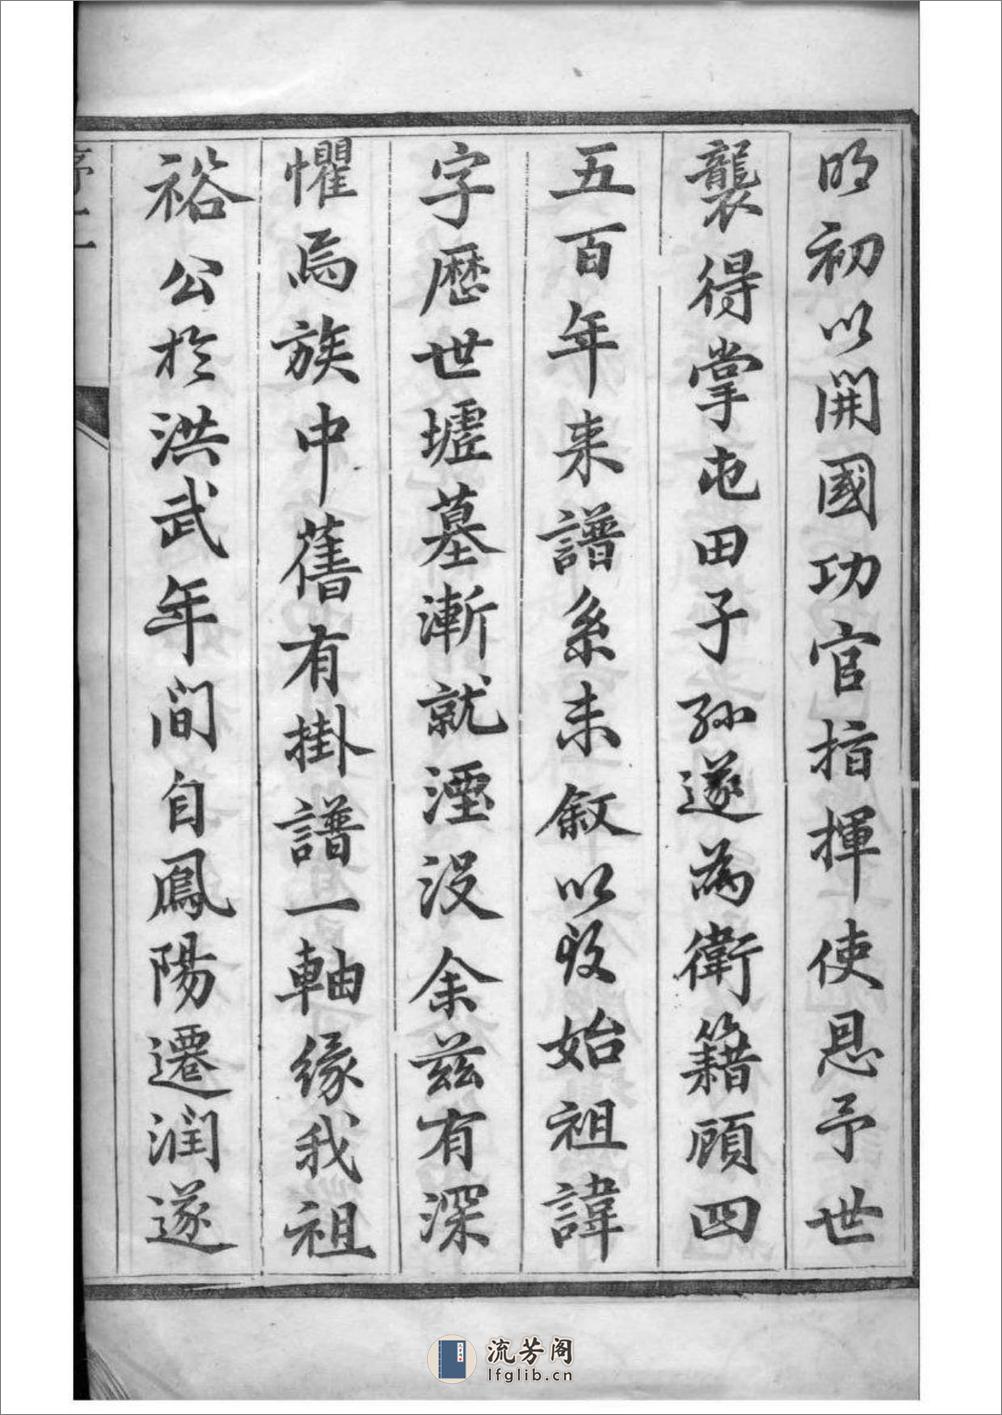 明初以開國功官指揮使恩予世
襲得掌屯田子孫遂為衛籍顧四
五百年来譜系未敘以致始祖諱
字歷世壚墓漸就湮没余兹有深
懼焉族中舊有掛譜一軸緣我祖
裕公於洪武年间自鳳陽遷潤遂
序二
流芳阁
lfglib.cn